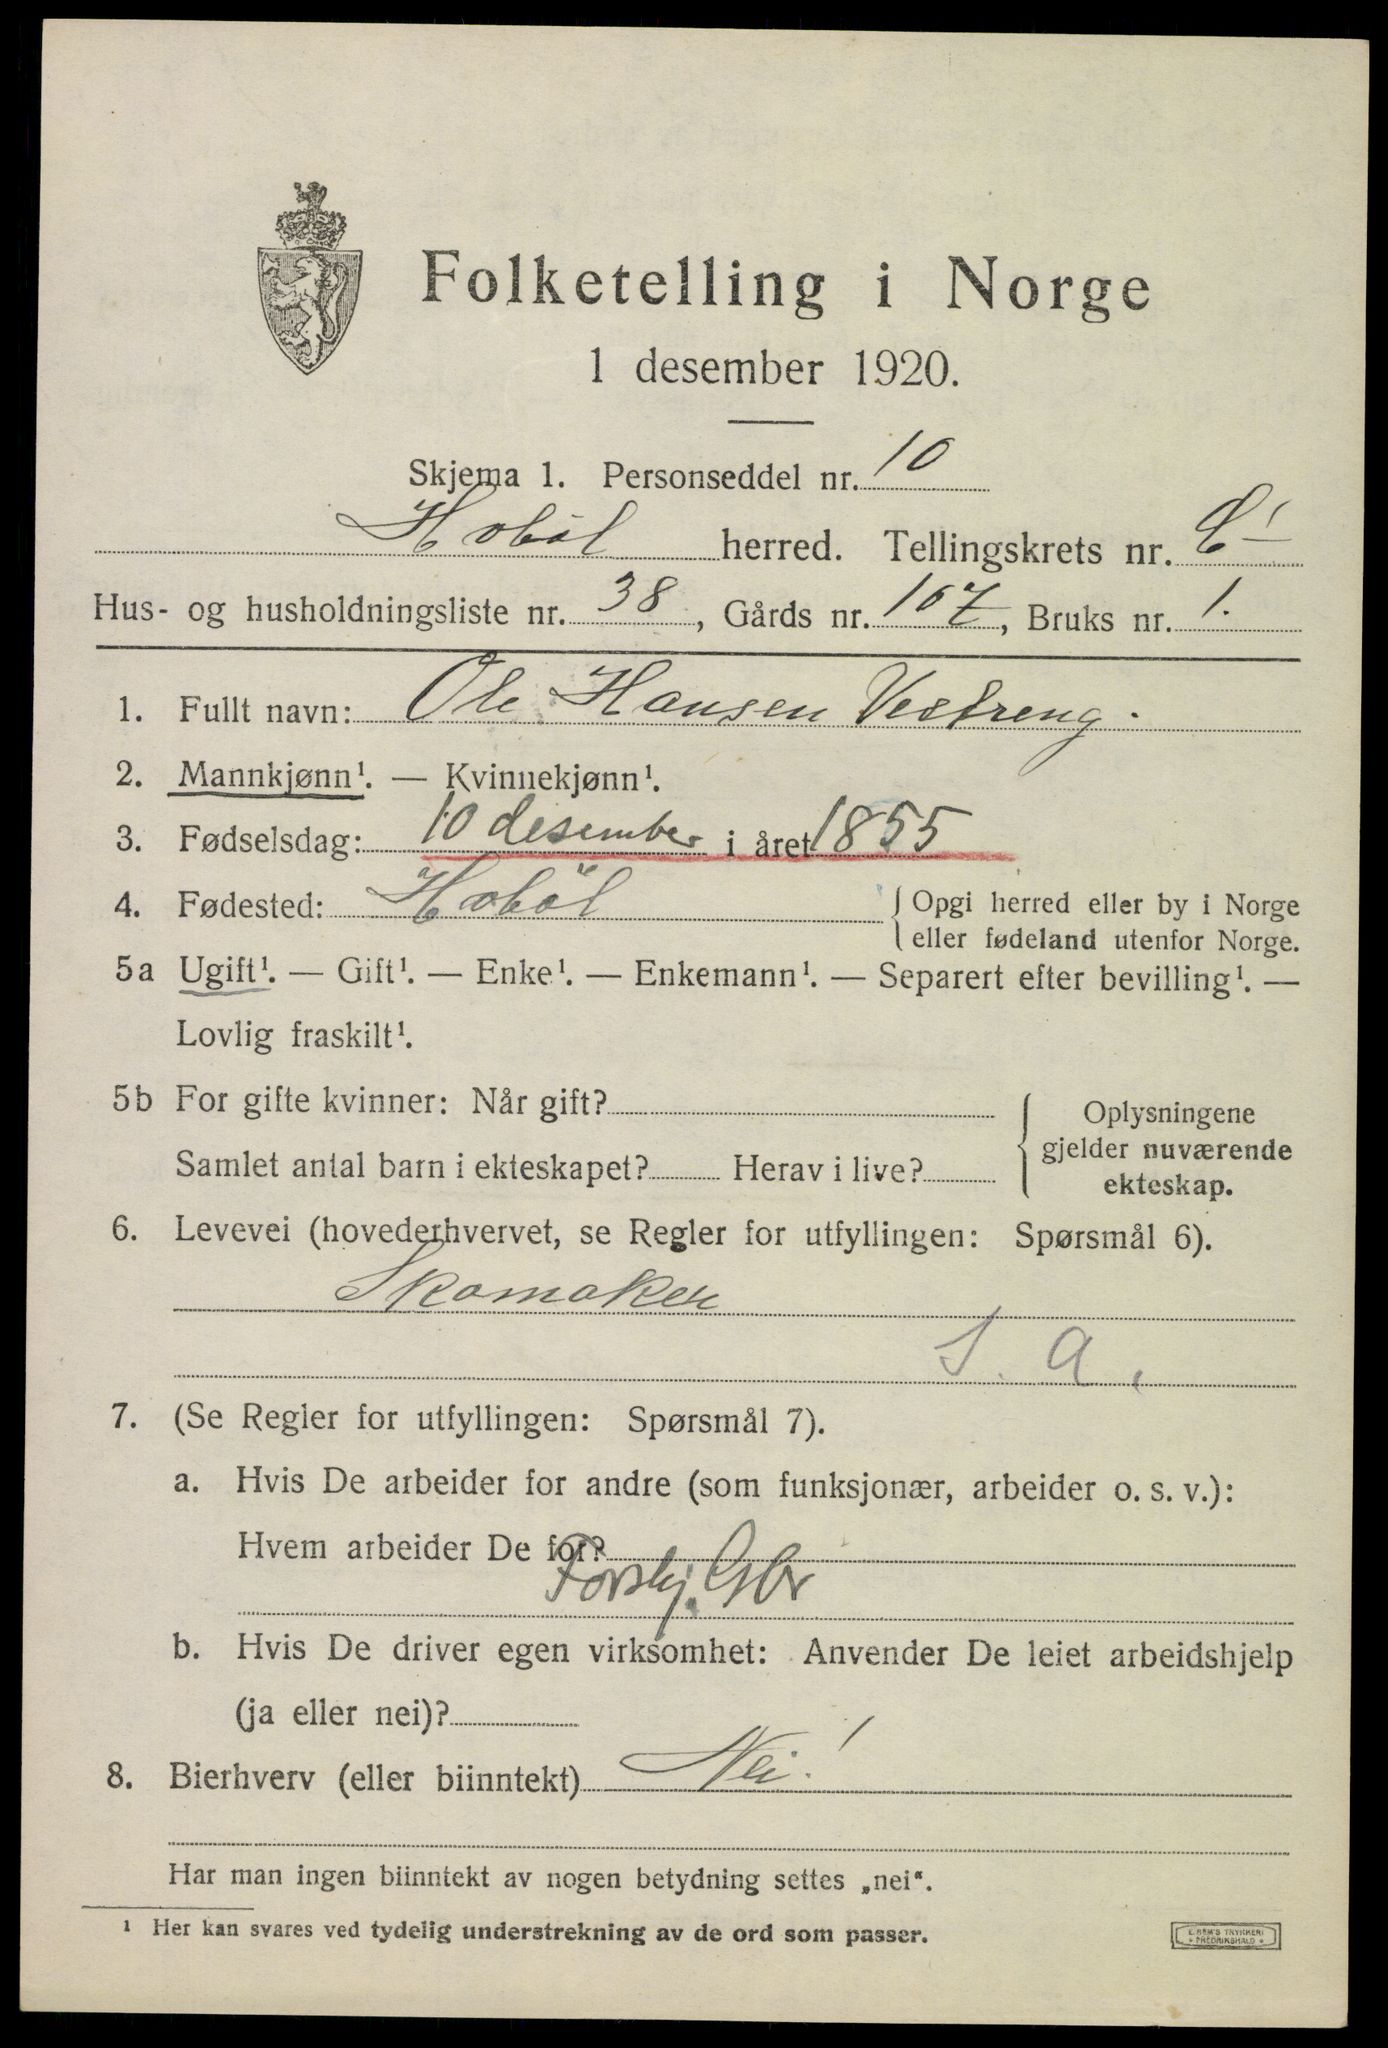 Folketelling i Norge
1 desember 1920.
Skjema 1. Personseddel nr. 10
Hobøl herred. Tellingskrets nr.
Hus- og husholdningsliste nr. 38, Gårds nr. 107, Bruks nr. 1.
1. Fullt navn: Ole Hansen Vestreng.
2. Mannkjønn¹. — Kvinnekjønn¹.
3. Fødselsdag: 10 desember i året 1855
4. Fødested: Hobøl { Opgi herred eller by i Norge
eller fødeland utenfor Norge.
5a Ugift¹. — Gift¹. — Enke¹. — Enkemann¹. — Separert efter bevilling¹. —
Lovlig fraskilt¹.
5b For gifte kvinner: Når gift?
Samlet antal barn i ekteskapet? Herav i live?
{ Oplysningene
gjelder nuværende
ekteskap.
6. Levevei (hovederhvervet, se Regler for utfyllingen: Spørsmål 6).
Skomaker
S. A.
7. (Se Regler for utfyllingen: Spørsmål 7).
a. Hvis De arbeider for andre (som funksjonær, arbeider o. s. v.):
Hvem arbeider De for?
b. Hvis De driver egen virksomhet: Anvender De leiet arbeidshjelp
(ja eller nei)?
8. Bierhverv (eller biinntekt) Nei!
Har man ingen biinntekt av nogen betydning settes „nei“.
¹ Her kan svares ved tydelig understrekning av de ord som passer.
E. SEM'S TRYKKERI
FREDRIKSHALD